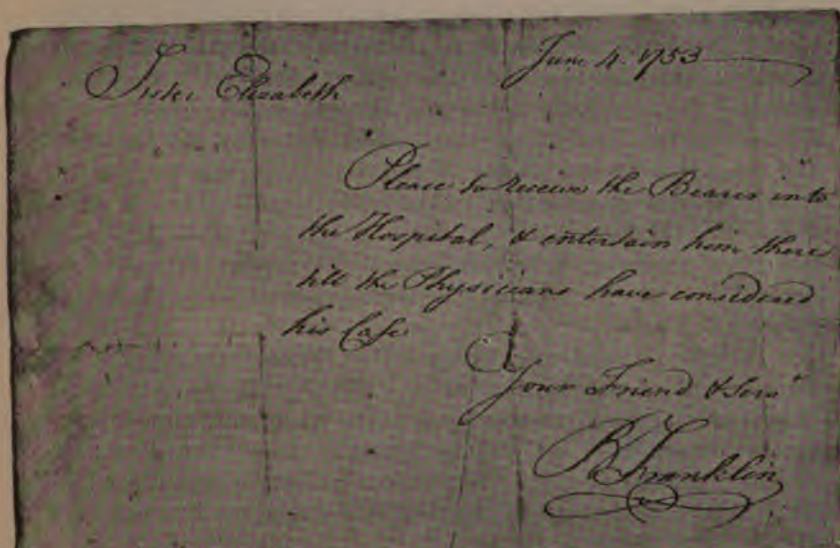 June 4. 1753
Sister Elizabeth
Please to receive the Bearer into
the Hospital, & entertain him there
till the Physicians have considered
his Case
Your Friend & Servt
B Franklin